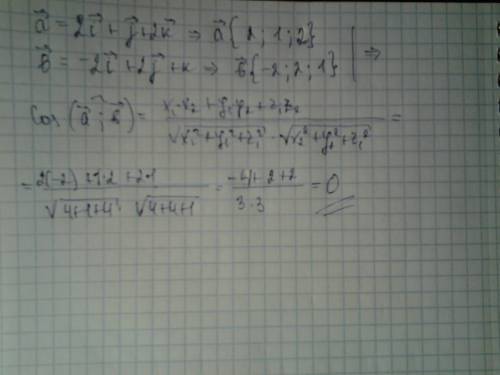 a⃗ = 2i⃗ + j⃗ + 2k⃗ ⇒ a⃗{2; 1; 2}
b⃗ = -2i⃗ + 2j⃗ + k ⇒ b⃗{-2; 2; 1} | ⇒
Cos(a⃗; b⃗) = (x₁·x₂ + y₁y₂ + z₁z₂) / (√(x₁² + y₁² + z₁²) · √(x₂² + y₂² + z₂²)) =
= (2(-2) + 1·2 + 2·1) / (√(4+1+4) · √(4+4+1)) = (-4 + 2 + 2) / (3·3) = 0